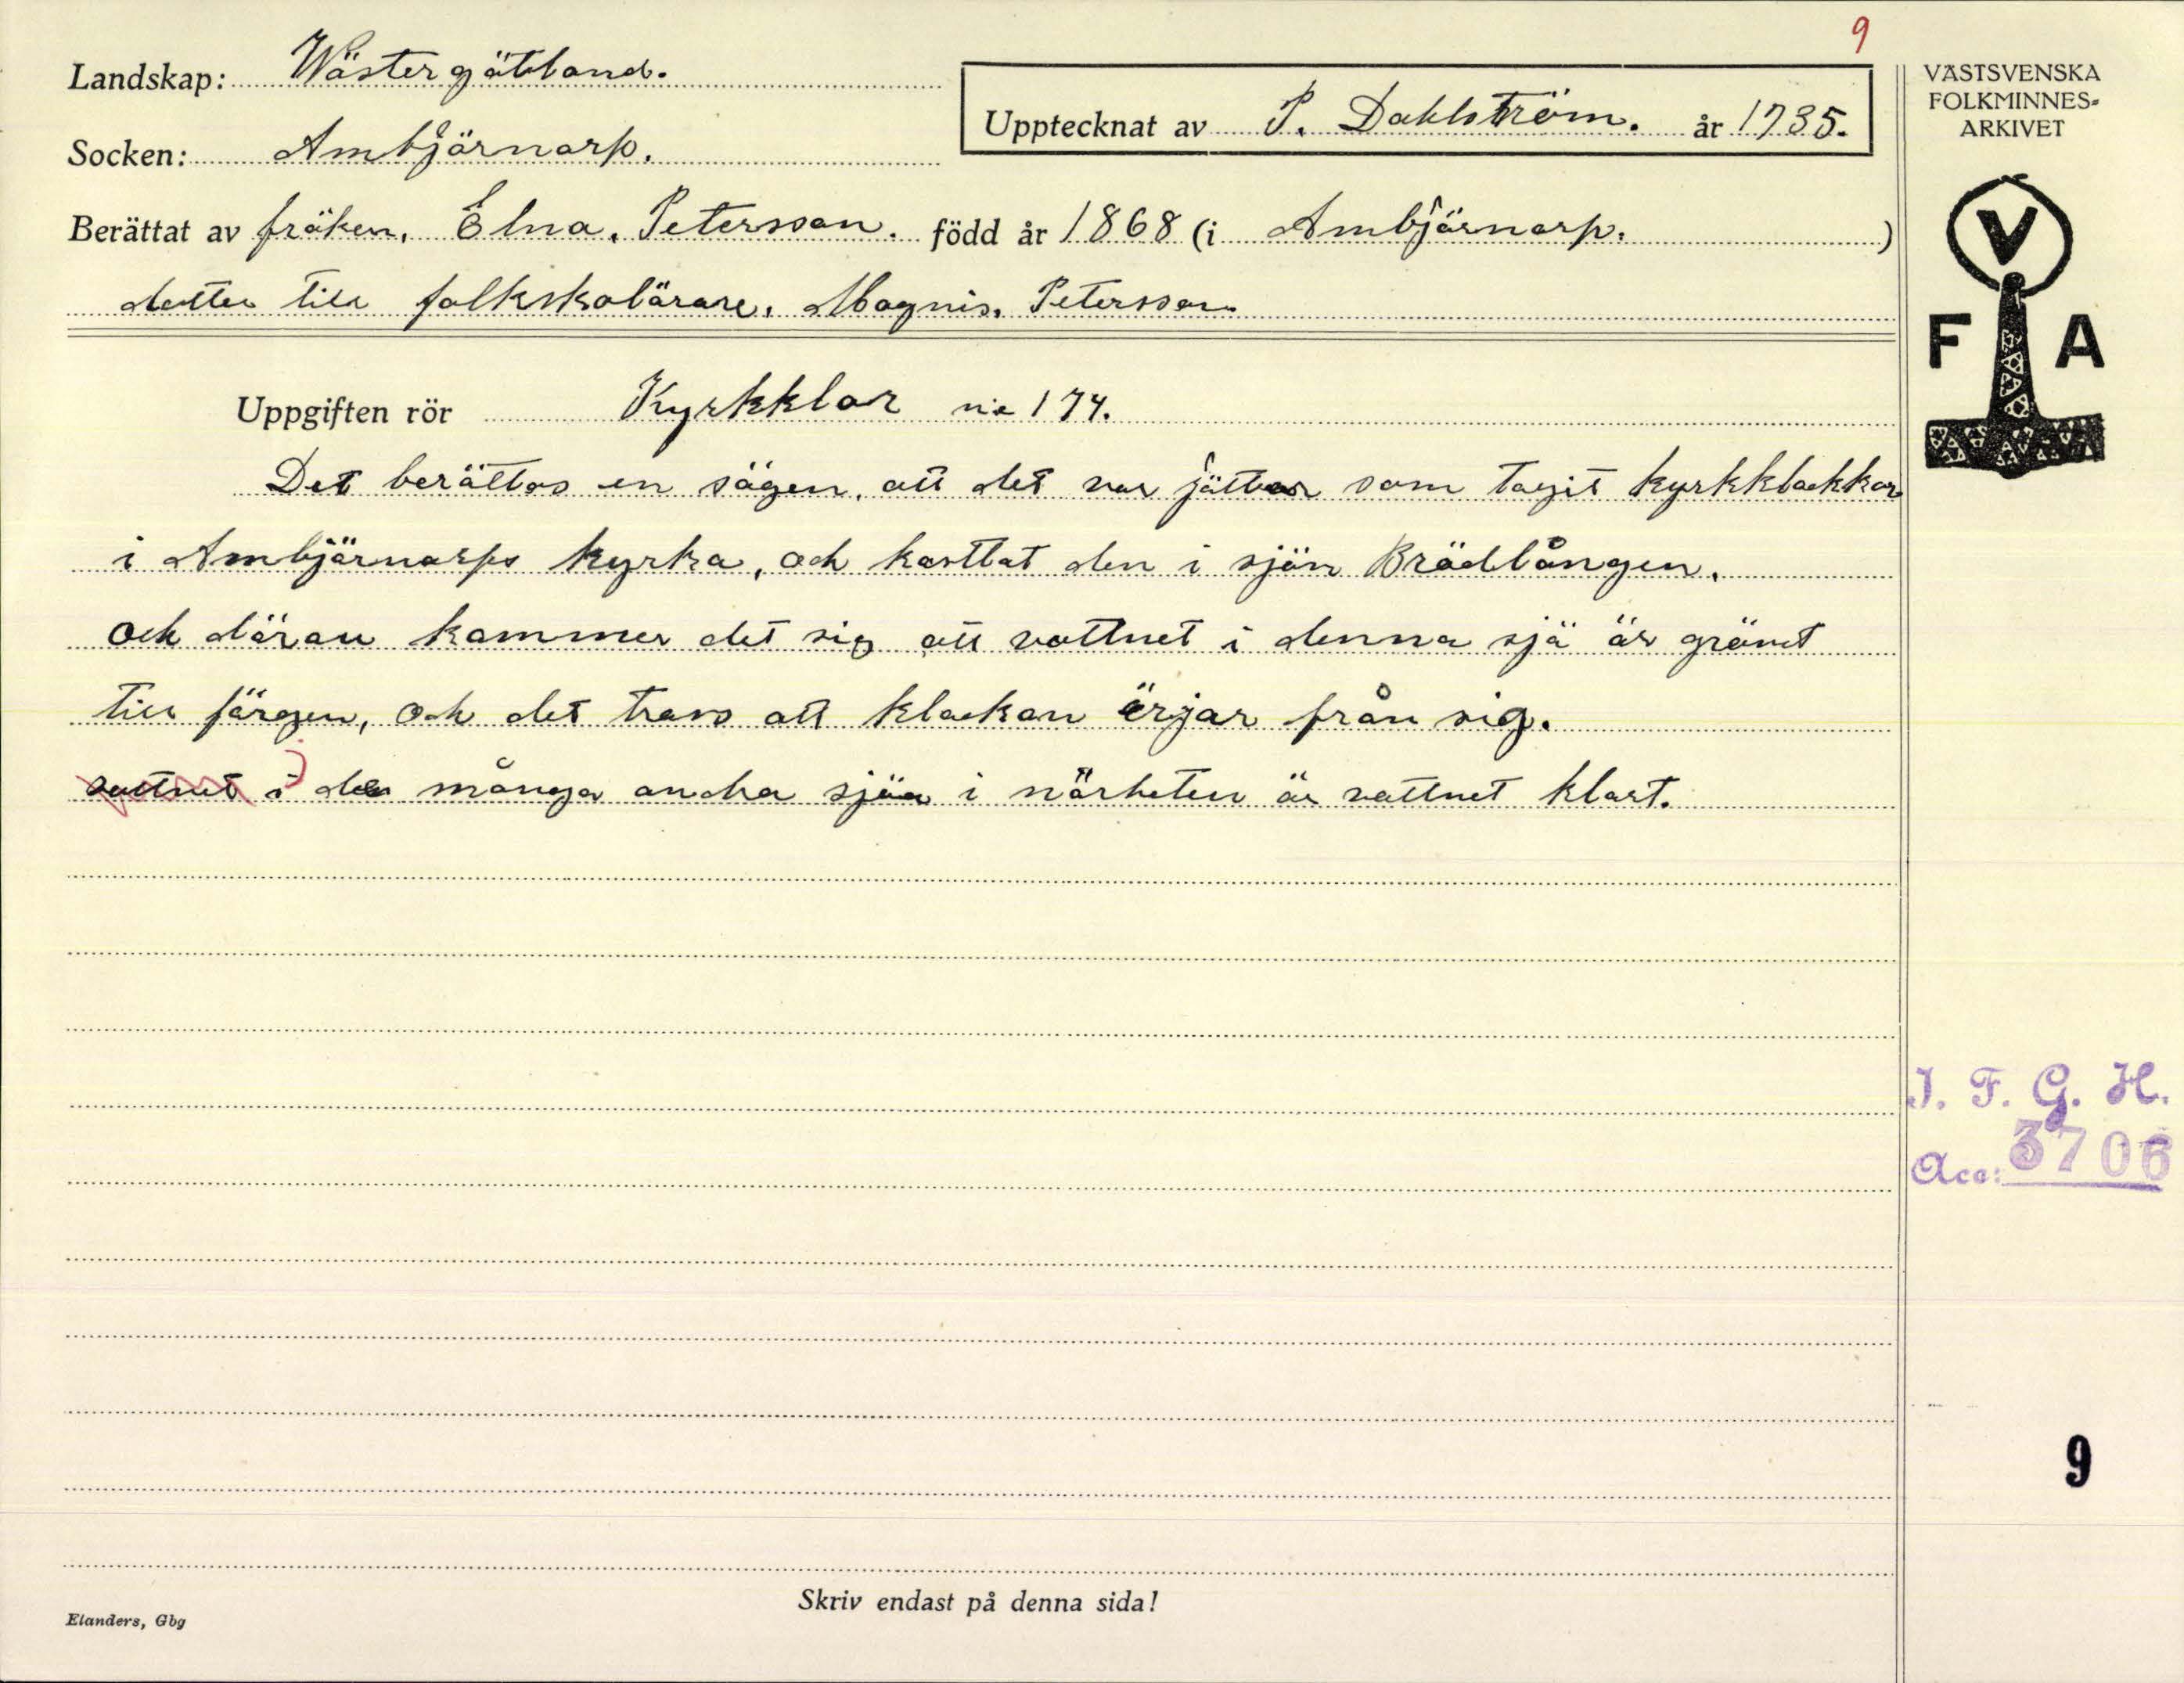 9
Landskap: Wästergötland.
Upptecknat av P. Dahlström. år 1935.
Socken: Ambjörnarp.
Berättat av fröken, Elna, Petersson. född år 1868 (i Ambjörnarp. )
dotter till folkskolärare, Magnis, Petersson
Uppgiften rör Kyrkklor nr 174.
Det berättas en sägen, att det var jättar som tagit kyrkklockkan
i Ambjörnarps kyrka, och kasttat den i sjön Brädlången.
och därav kommer det sig att vattnet i denna sjö är grönt
till färgen, och det tros att klockan ärjar från sig.
vattnet i de många andra sjöa i närheten är vattnet klart.
Skriv endast på denna sida!
Elanders, Gbg
VÄSTSVENSKA
FOLKMINNES-
ARKIVET
V
F A
I. F. G. H.
Acc: 3706
9